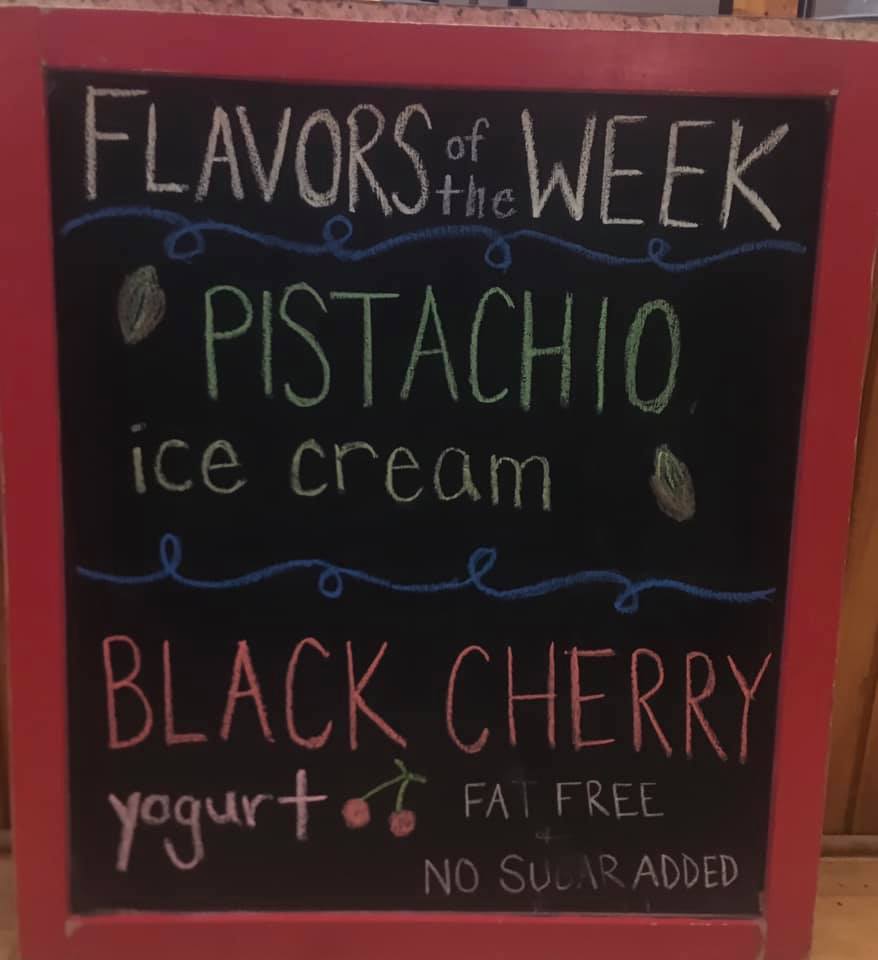 FLAVORS of the WEEK
PISTACHIO
ice cream
BLACK CHERRY
yogurt FAT FREE
+
NO SUGAR ADDED